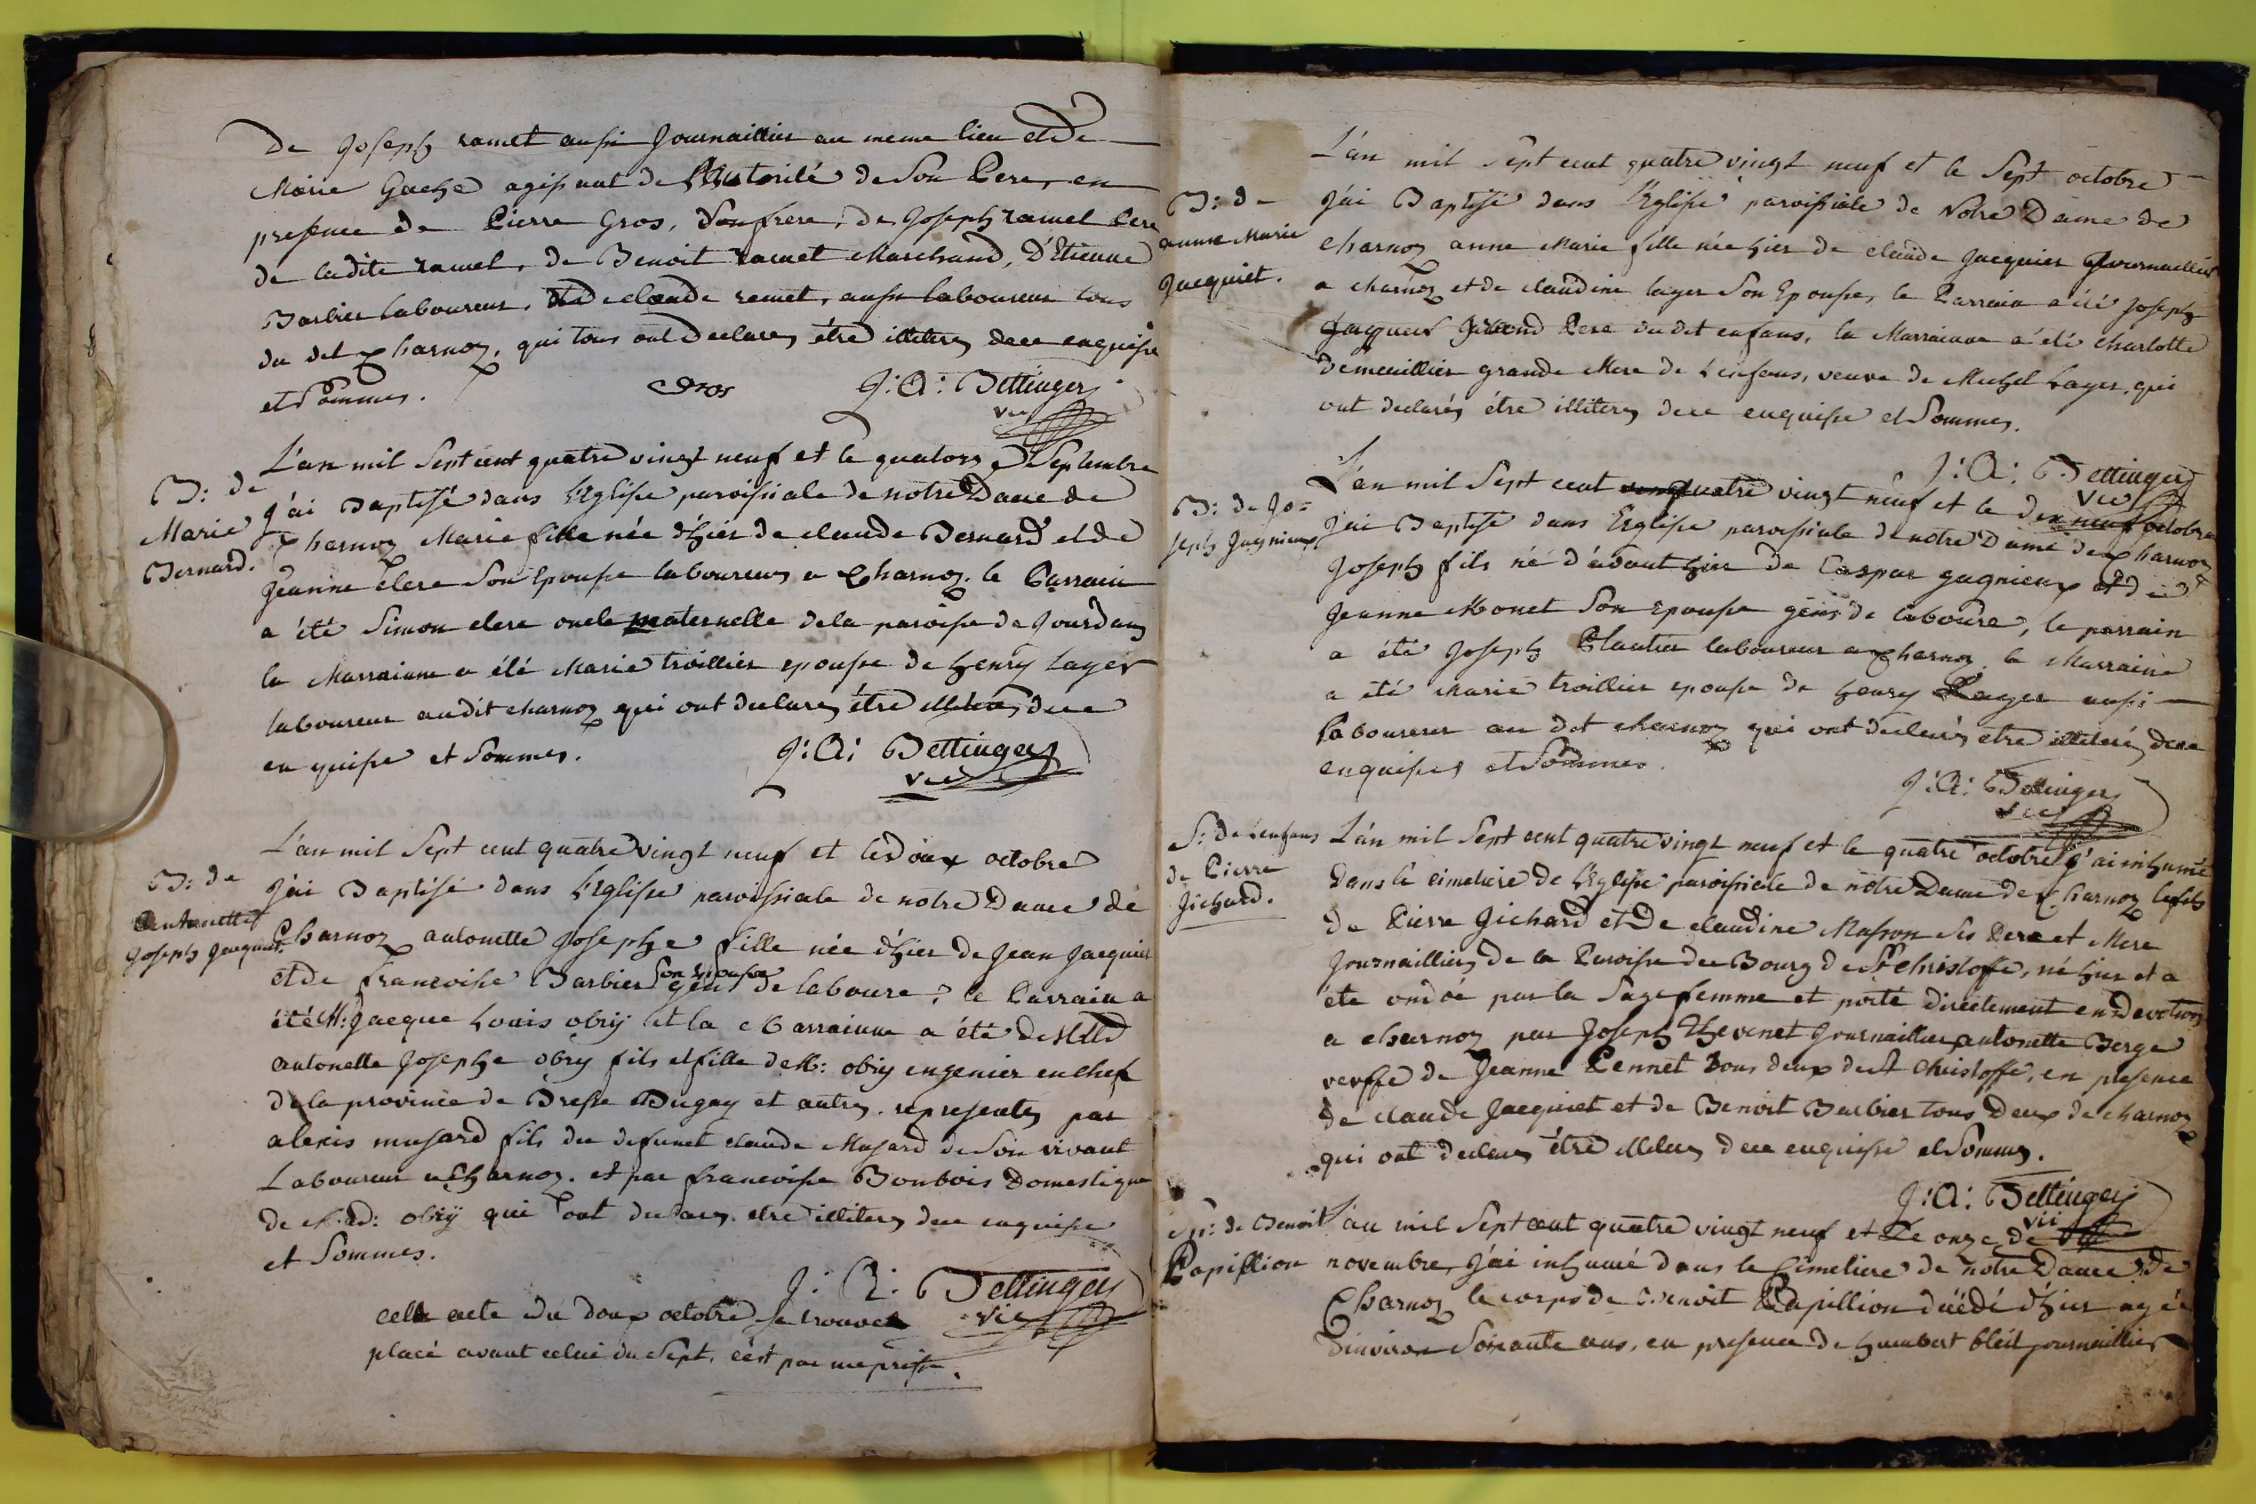 De Joseph ramet aussi Journaillier au meme lieu et De
Marie Gache agissant de l'autorité de Son Pere, en
presence de Pierre Gros, Son frere, de Joseph ramel Pere
de ladite ramel, de Benoit ramet Marchand, D'Etienne
Barbier laboureur, et de claude ramet, aussi laboureur tous
du dit Charnoz, qui tous ont Declarés être illiterés dece enquise
et Sommes.
Gros J: A: Bettinger
vic
B: de
Marie
Bernard.
L'an mil Sept cent quatre vingt neuf et le quatorze Septembre
J'ai Baptisé dans l'Eglise paroissiale de notre Dame de
Charnoz Marie fille née d'hier de claude Bernard et de
Jeanne clere Son Epouse laboureurs a Charnoz. le Parrain
a été Simon clere oncle maternelle de la paroisse de Jourdans
la Marraiane a élé Marie troillier epouse de henry Layer
laboureur audit charnoz qui ont declarés être illiterés dece
enquise et Sommes.
J: A: Bettinger
vic
B: de
Antonette
Joseph Jacquiet.
L'an mil Sept cent quatre vingt neuf et le doux octobre
J'ai Baptisé dans l'Eglise paroissiale de notre Dame de
Charnoz antonette Josephe fille née d'hier de Jean Jacquiet
et de francoise Barbier Son Epouse gens de laboure, le Parrain a
été M: Jacque Louis obry et la Marraiane a été de Mlle
antonette Josephe obry fils et fille de M: obry engenier en chef
de la province de Bresse Bugey et autres. representés par
alexis musard fils du defunct claude Musard de Son vivant
Laboureur a Charnoz. et par francoise Bonbois Domestique
de M: D: obry qui ont declarés etre illiterés dece enquise
et Sommes.
J: A: Bettinger
vic
cette acte du doux octobre se trouve
placé avant celui du Sept. c'est par meprise.
B: de
anne Marie
Jacquiet.
L'an mil Sept cent quatre vingt neuf et le Sept octobre
J'ai Baptisé dans l'Eglise paroissiale de Notre Dame de
charnoz anne Marie fille née hier de claude Jacquier Journaillier
a charnoz et de claudine layer Son Epouse, le Parrain a été Joseph
Jacquier Grand Pere du dit enfans, la Marraiane a été charlotte
Demeuillier grande Mere de l'enfans, veuve de Michel Layer, qui
ont declarés être illiterés dece enquise et Sommes.
J: A: Bettinger
vic
B: de Jo=
seph Gagnieux
L'an mil Sept cent quatre vingt neuf et le dix neuf octobre
J'ai Baptisé dans l'Eglise paroissiale de notre Dame de Charnoz
Joseph fils né d'avant hier de Caspar gagnieux et de
Jeanne Monet Son epouse gens de laboure, le parrain
a été Joseph Plantier laboureur a Charnoz. la Marraine
a été Marie troillier epouse de henry Layer aussi
Laboureur au dit charnoz qui ont declarés etre illiterés dece
enquises et Sommes.
J: A: Bettinger
vic
S: de l'enfans
de Pierre
Jichard.
L'an mil Sept cent quatre vingt neuf et le quatre octobre J'ai inhumé
Dans le cimetiere de l'Eglise paroissiale de notre Dame de Charnoz le fils
de Pierre Jichard et De claudine Masson Ses Pere et Mere
Journailliers de la Paroisse du Bourg de St christoffe, né hier et a
éte ondoé par la Sage femme et porté directement en devotion
a charnoz par Joseph Thevenet Journaillier, antonette Berge
verffe de Jeanne Pennet tous deux de St christoffe, en presence
de claude Jacquiet et de Benoit Barbier tous Deux de charnoz
qui ont declarés être illiterés dece enquise et Sommes.
J: A: Bettinger
vic
Sp: de Benoit
Papillion
L'an mil Sept cent quatre vingt neuf et Le onze de
novembre, J'ai inhumé dans le Cimetiere de notre Dame de
Charnoz le corps de Benoit Papillion décédé d'hier agée
d'environ Soixante ans, en presence de humbert bleil journaillier